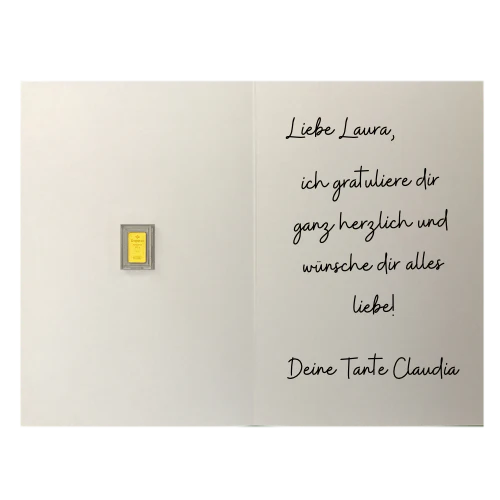 Liebe Laura,
ich gratuliere dir
ganz herzlich und
wünsche dir alles
liebe!
Deine Tante Claudia